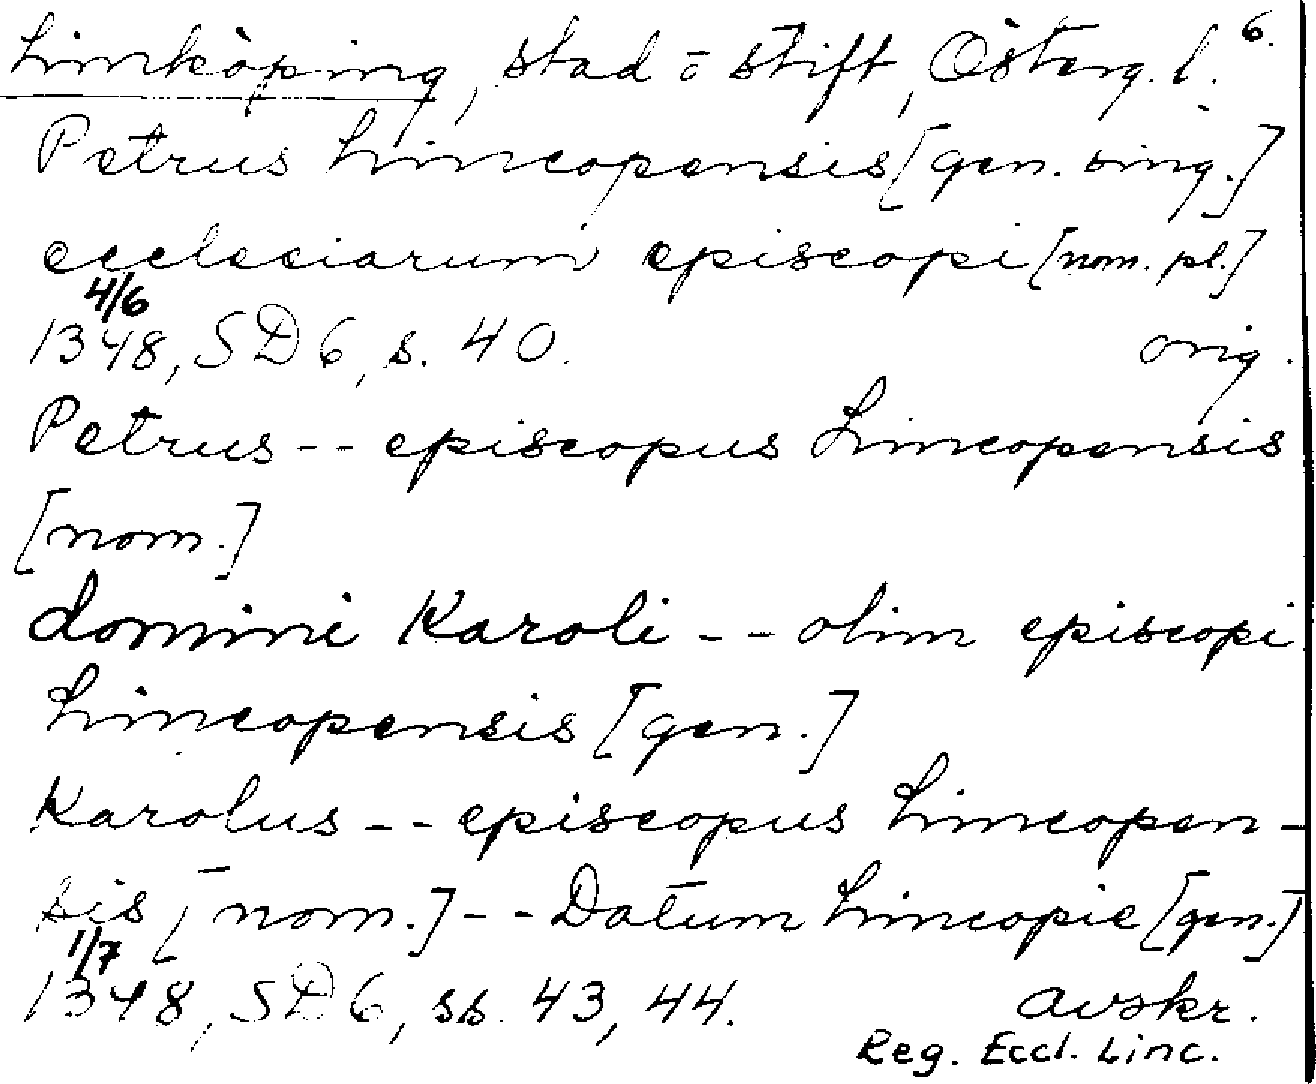 Linköping, stad o stift, Österg. l. 6.
Petrus Lincopensis [gen. sing.]
ecclesiarum episcopi [nom. pl.]
4/6
1348, SD 6, s. 40. orig.
Petrus -- episcopus Lincopensis
[nom.]
domini Karoli -- olim episcopi
Lincopensis [gen.]
Karolus -- episcopus Lincopen-
sis [nom.] -- Datum Lincopie [gen.]
1/7
1348, SD 6, ss. 43, 44. avskr.
Reg. Eccl. Linc.